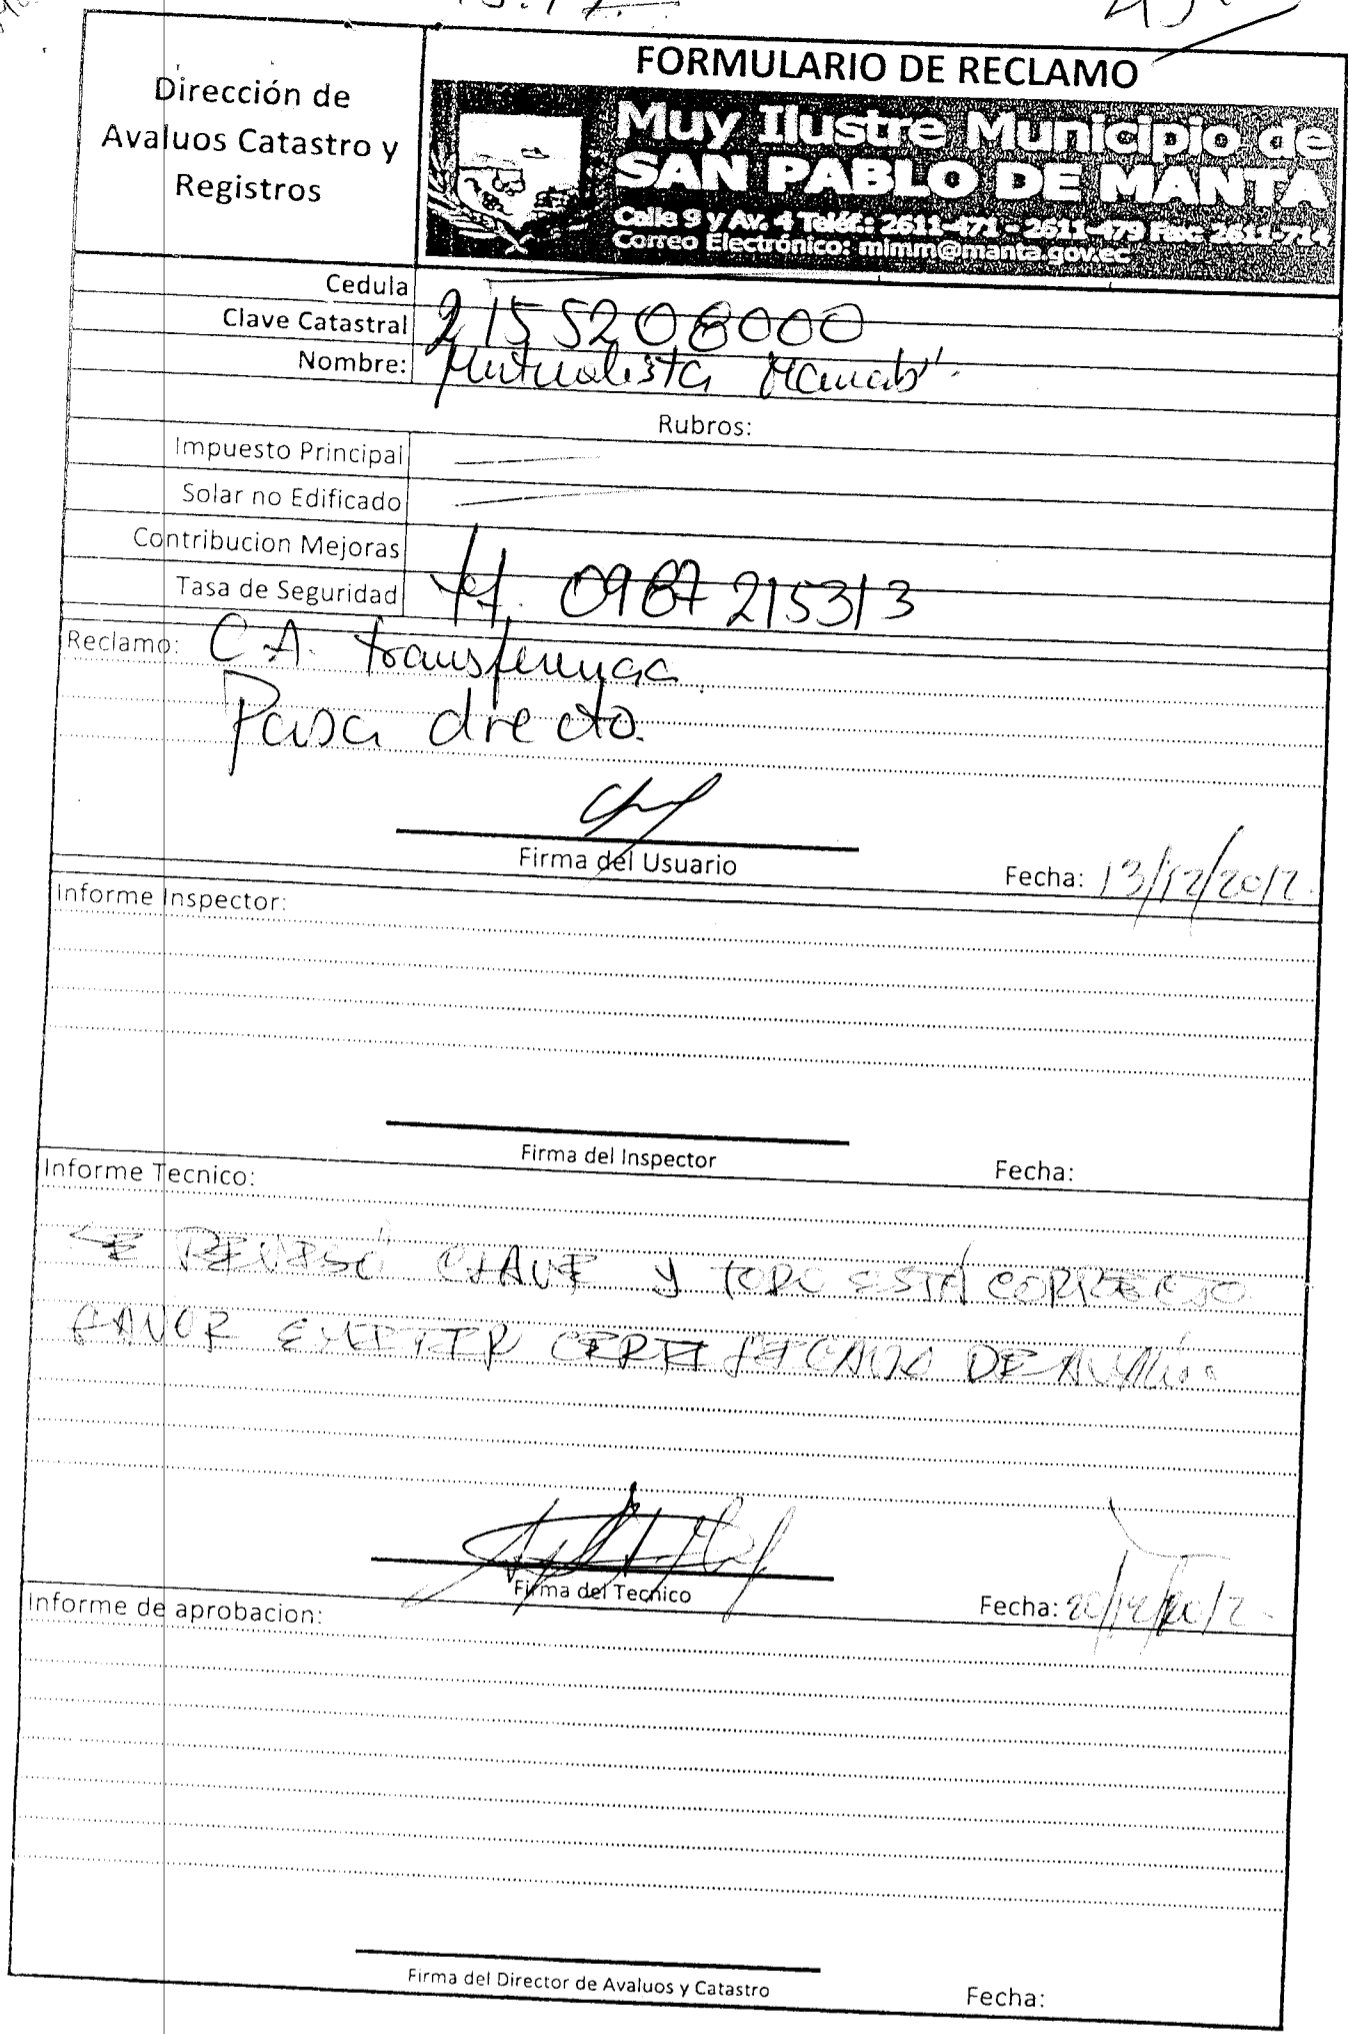 FORMULARIO DE RECLAMO
Dirección de
Avaluos Catastro y
Registros
Muy Ilustre Municipio de
SAN PABLO DE MANTA
Calle 9 y Av. 4 Teléf.: 2611-471 - 2611-479 Fax: 2611-714
Correo Electrónico: mimm@manta.gov.ec
Cedula
Clave Catastral 2155208000
Nombre: Mutualista Manabí.
Rubros:
Impuesto Principal
Solar no Edificado
Contribucion Mejoras
Tasa de Seguridad 0987215313
Reclamo: C.A.
Pasa directo.
Firma del Usuario
Fecha: 13/12/2012.
Informe Inspector:
Firma del Inspector
Fecha:
Informe Tecnico:
SE REVISÓ CLAVE Y TODO ESTÁ CORRECTO
FAVOR EMITIR CERTIFICADO DE AVALÚO.
Firma del Tecnico
Fecha: 20/12/2012.
Informe de aprobacion:
Firma del Director de Avaluos y Catastro
Fecha: